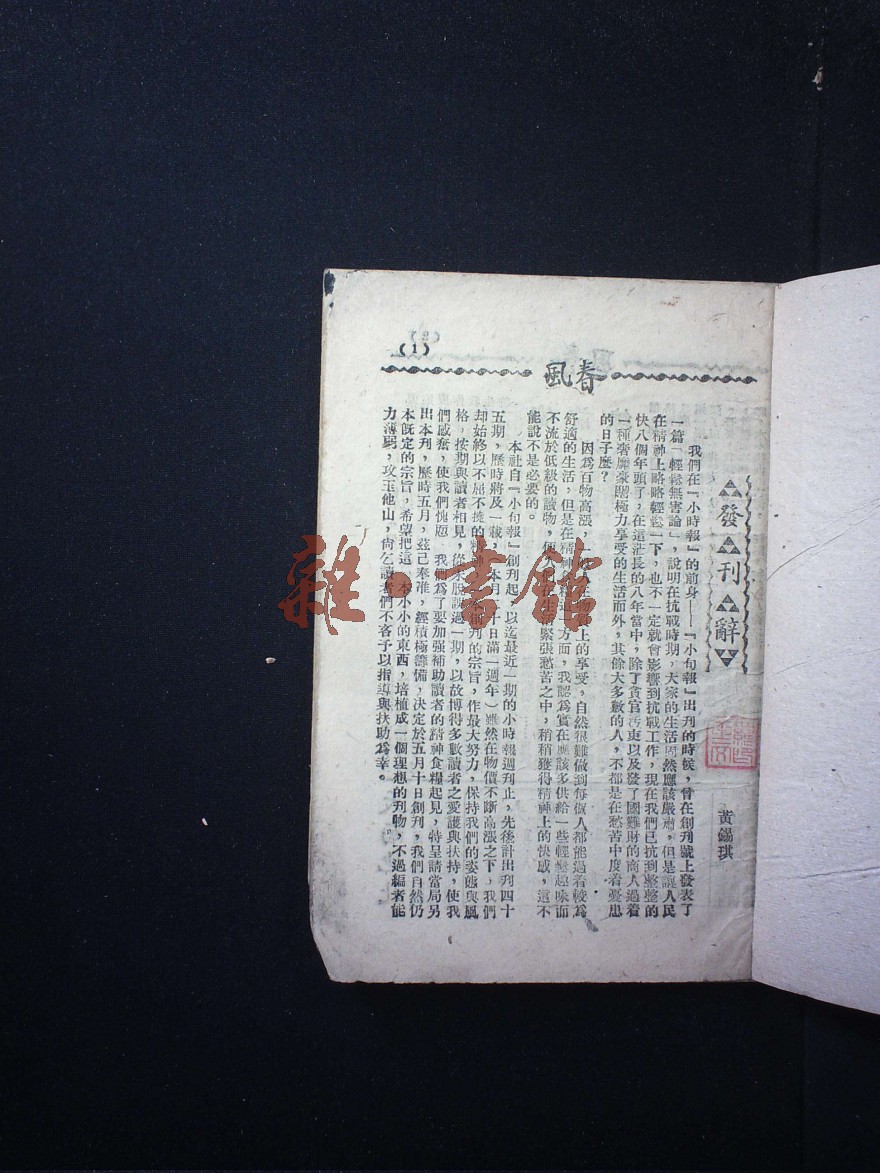 春風
(1)
發刊辭
黃錫琪
我們在『小時報』的前身——『小句報』出刊的時候，曾在創刊號上發表了
一篇「輕鬆無害論」，說明在抗戰時期，大家的生活固然應該嚴肅，但是讓人民
在精神上略略輕鬆一下，也不一定就會影響到抗戰工作，現在我們已抗到整整的
快八個年頭了，在這漟長的八年當中，除了貪官污吏以及發了國難財的商人過着
一種奢靡豪闊極力享受的生活而外，其餘大多數的人，不都是在愁苦中度着憂患
的日子麼？
因爲百物高漲，物質上的享受，自然很難做到每個人都能過着較爲
舒適的生活，但是在精神方面，我認爲實在應該多供給一些輕鬆趣味而
不流於低級的讀物，使人緊張愁苦之中，稍稍獲得精神上的快感，這不
能說不是必要的。
本社自『小句報』創刊起，以迄最近一期的小時報週刊止，先後計出刊四十
五期，歷時將及一載，（本月十日滿一週年）雖然在物價不斷高漲之下，我們
却始終以不屈不撓的精神，創刊的宗旨，作最大努力，保持我們的姿態與風
格，按期與讀者相見，從未脫誤過一期，以故博得多數讀者之愛護與扶持，使我
們感奮，使我們愧恧，我們爲了要加强補助讀者的精神食糧起見，特呈請當局另
出本刊，歷時五月，茲已奉准，經積極籌備，決定於五月十日創刊，我們自然仍
本既定的宗旨，希望把這一本小小的東西，培植成一個理想的刊物，不過編者能
力薄弱，攻玉他山，尙乞讀者們不吝予以指導與扶助爲幸。
雜·書館